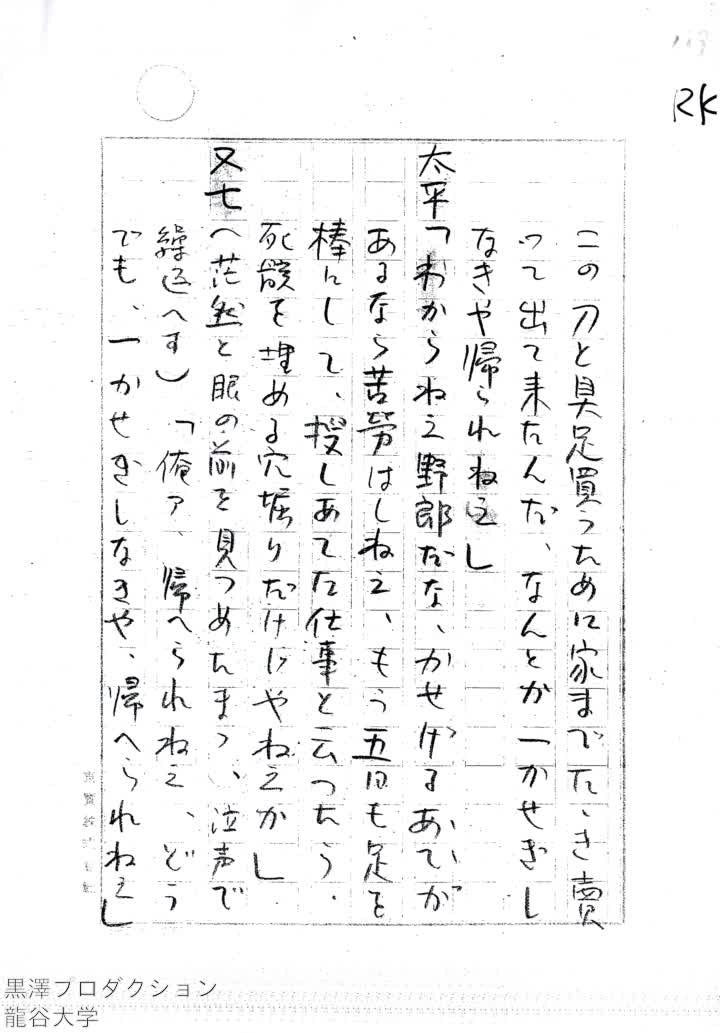 RK
この刀と具足買うために家までたゝき賣
つて出て来たんだ、なんとか一かせぎし
なきや帰られねえ」
太平「わからねえ野郎だな、かせげるあてが
あるなら苦労はしねえ、もう五日も足を
棒にして、捜しあてた仕事と云つたら、
死骸を埋める穴堀りだけじやねえか」
又七（茫然と眼の前を見つめたまゝ、泣声で
繰返へす）「俺ァ、帰へられねえ、どう
でも、一かせぎしなきや、帰へられねえ」
黒澤プロダクション
龍谷大学